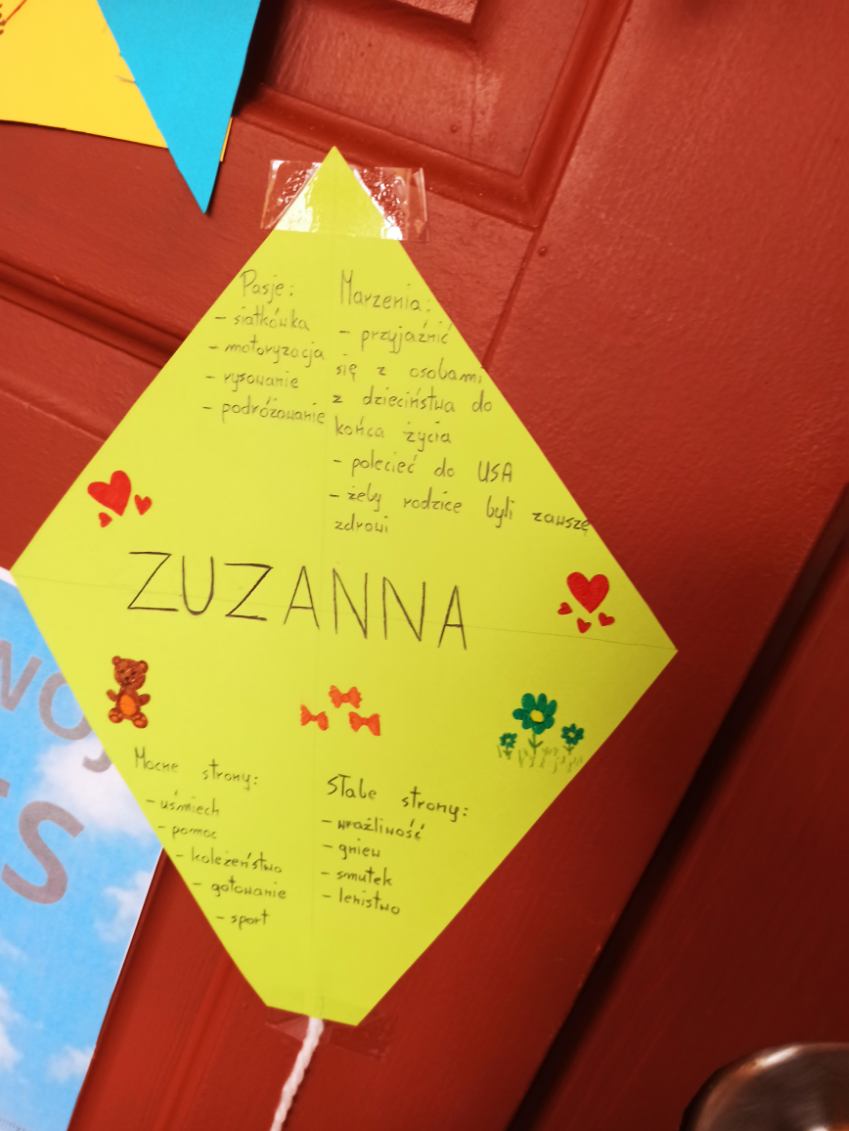 Pasje:
- siatkówka
- motoryzacja
- rysowanie
- podróżowanie
Marzenia:
- przyjaźnić
się z osobami
z dzieciństwa do
końca życia
- polecieć do USA
- żeby rodzice byli zawszę
zdrowi
ZUZANNA
Mocne strony:
- uśmiech
- pomoc
- koleżeństwo
- gotowanie
- sport
Słabe strony:
- wrażliwość
- gniew
- smutek
- lenistwo